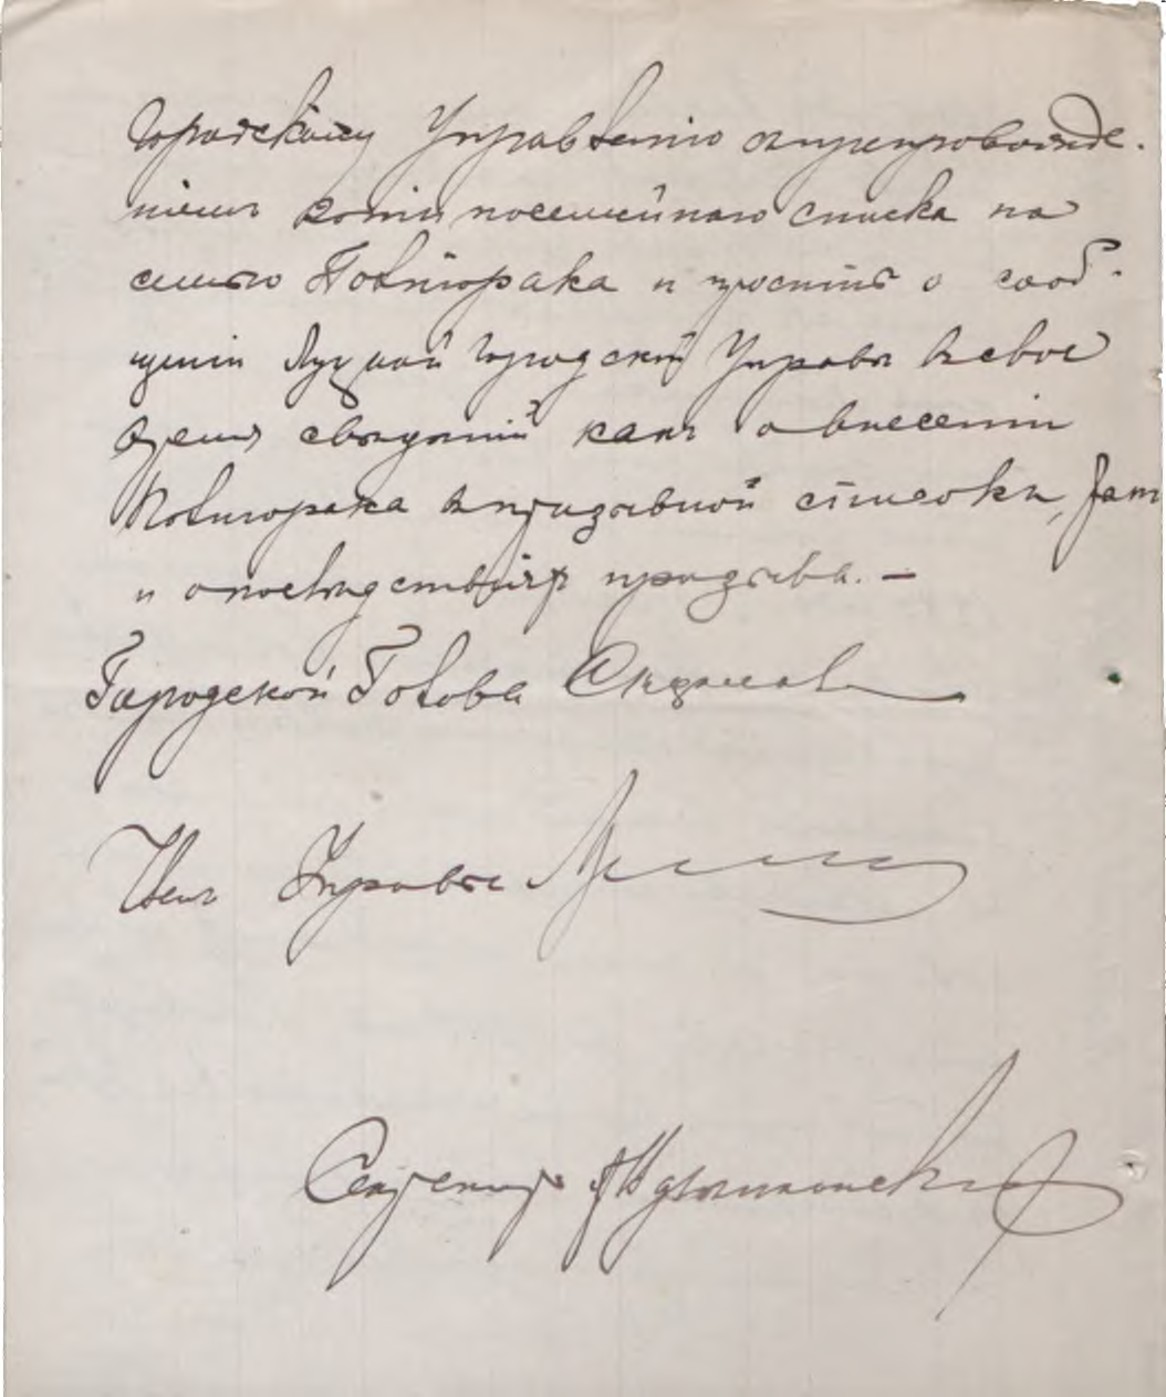 городскому Управленію съ препровожде-
ніемъ копіи посемейнаго списка на
семью Повторака и проситъ о сооб-
щеніи Луцкой Городской Управѣ въ свое
время свѣдѣній какъ о внесеніи
Повторака въ призывной списокъ,
и о послѣдствіяхъ призыва. —
Городской Голова
Членъ Управы
Секретарь